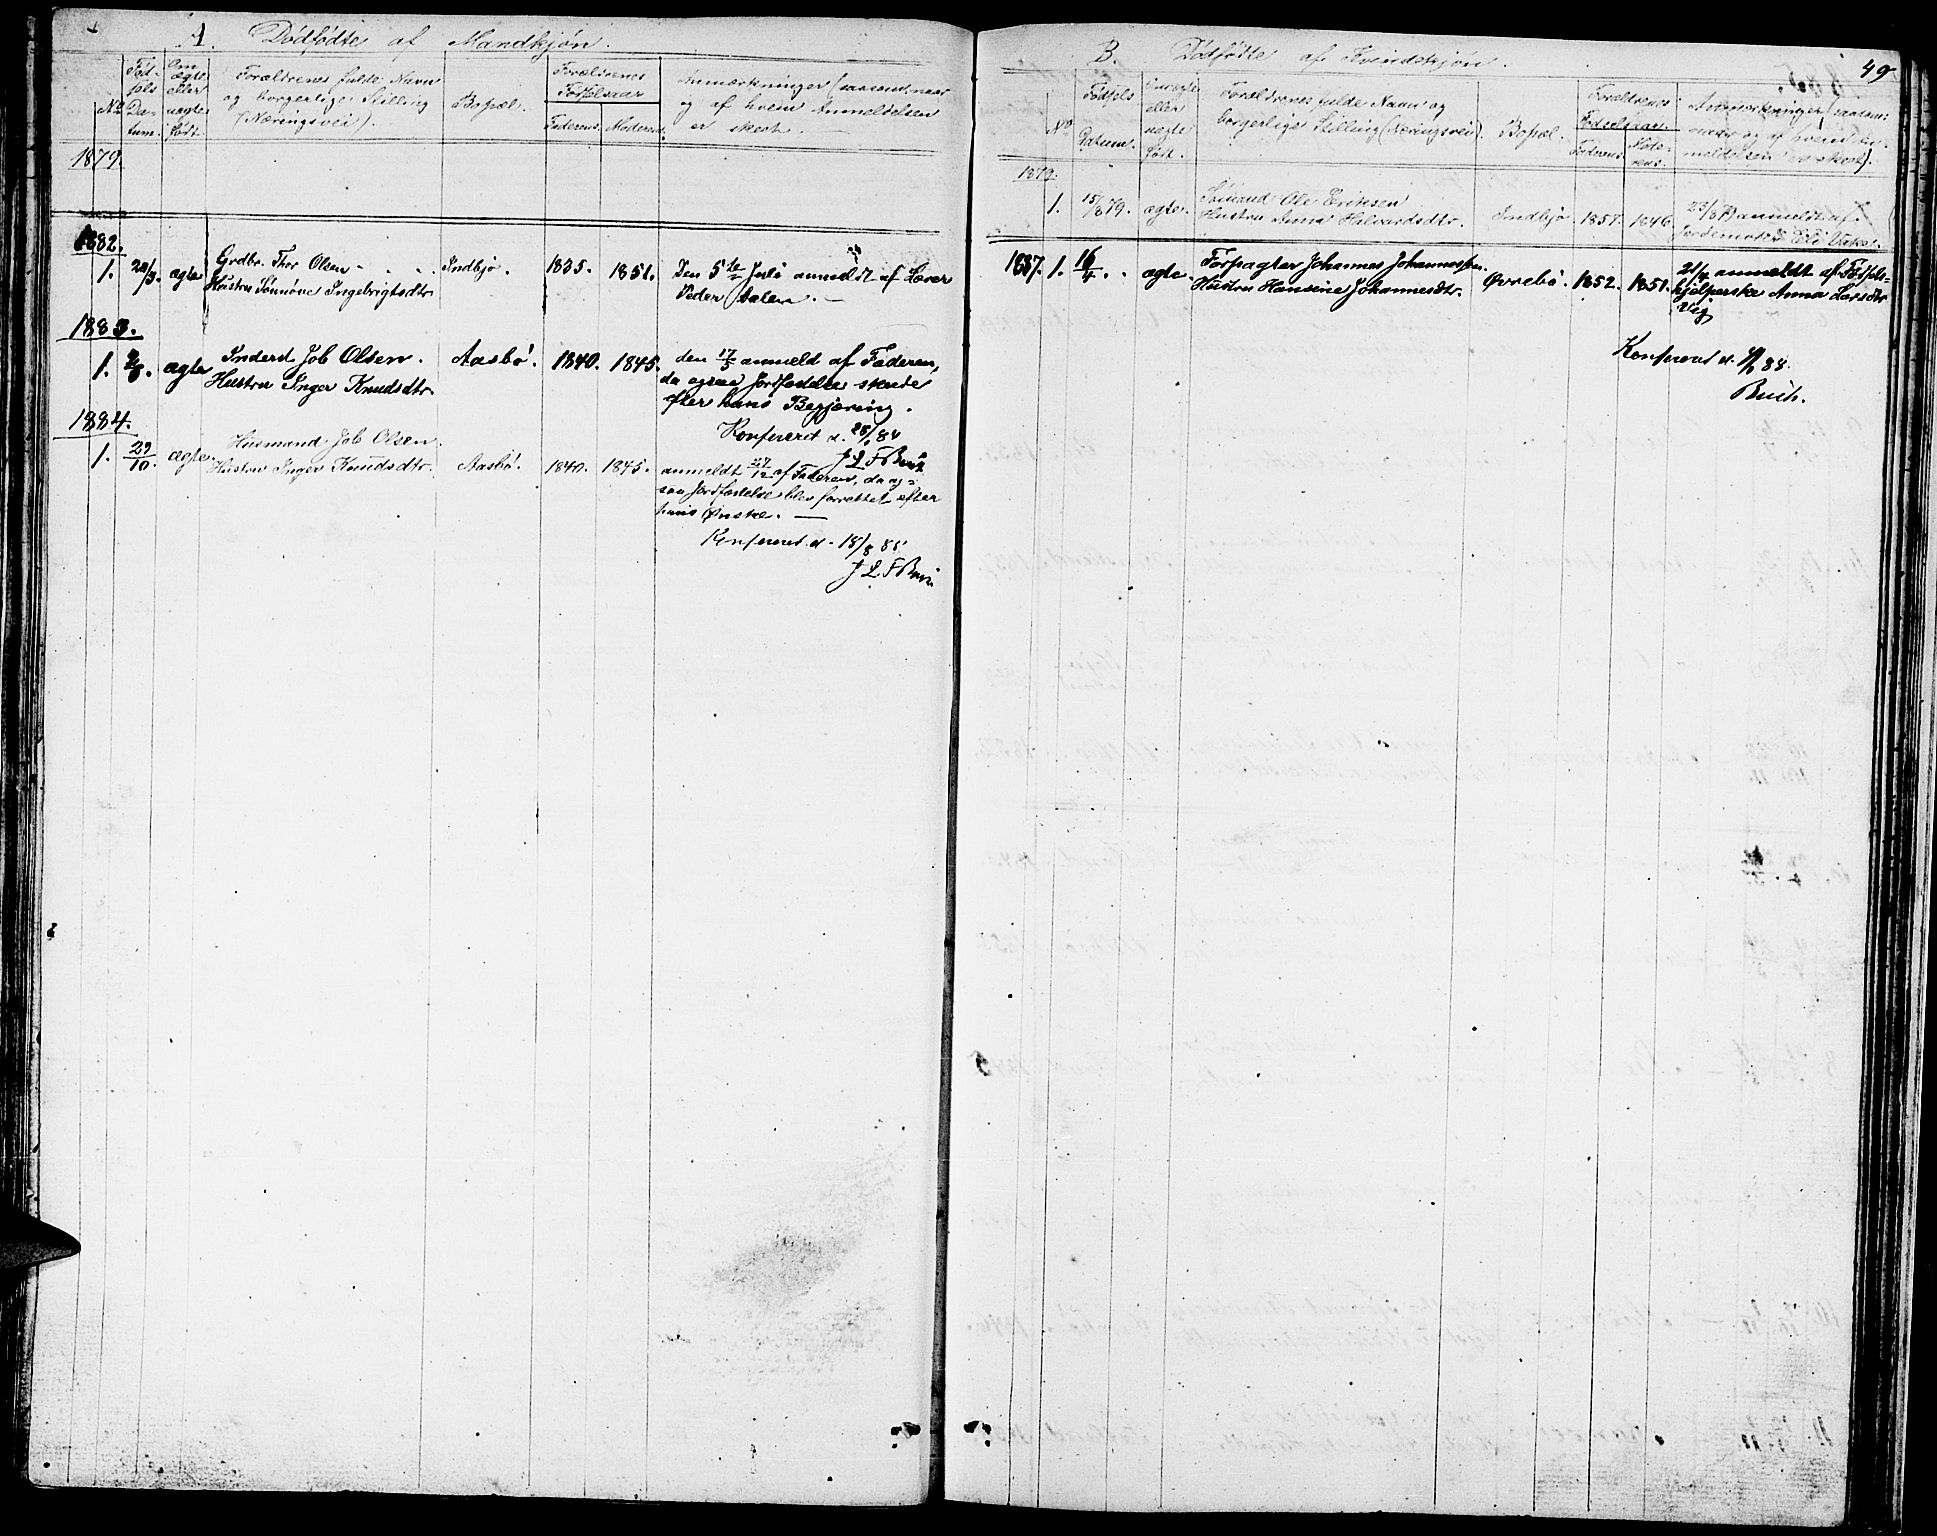 A. Dødfødte af Mandkjøn.
No
Fødsels Datum.
Om ægte eller uægte født.
Forældrenes fulde Navn og borgerlige Stilling (Næringsvei).
Bopæl.
Forældrenes Fødselsaar
Faderens. Moderens.
Anmærkninger (saasom, naar og af hvem Anmeldelsen er skeet.
1879.
1882.
1. 20/3. ægte Grdbr. Thor Olsen Indbjø. 1835. 1851. Den 5te Juli anmeldt af Lærer
Hustru Sønnøve Ingebrigtsdtr. Peder
1883.
1. ægte Inderst Job Olsen. Aasbø. 1840. 1845. den 17/5 anmeld af Faderen,
Hustru Inger Knudsdtr. da ogsaa Jordfæstelse skeede
efter hans Begjæring.
Konfereret d. 84
J L F Buch
1884.
1. 29/10. ægte. Husmand Job Olsen.
Hustru Inger Knudsdtr. Aasbø. 1840. 1845. anmeldt 27/12 af Faderen, da og=
saa Jordfæstelse blev forrettet efter
hans Ønske. —
Konfereret d. 18/8 85
J L F Buch
49
B. Dødfødte af Kvindekjøn.
No
Fødsels Datum.
Om ægte eller uægte født.
Forældrenes fulde Navn og borgerlige Stilling (Næringsvei).
Bopæl.
Forældrenes Fødselsaar.
Faderens Moderens.
Anmærkninger (saasom: naar og af hvem Anmeldelsen er skeet).
1879.
1. 15/8 79. ægte. Sømand Ole Eriksen
Hustru Anna Halvardsdtr. Indbjø 1857. 1846. 23/8 79 anmeldt af
Jordemoder
1887. 1. 16/4. ægte. Forpagter Johannes Johannessen. Øvrebø. 1852. 1851. 21/4 anmeldt af Fødsels=
Hustru Hansine Johannesdtr. hjælperske Anna Larsdtr
Konfereret d. 88.
Buch.